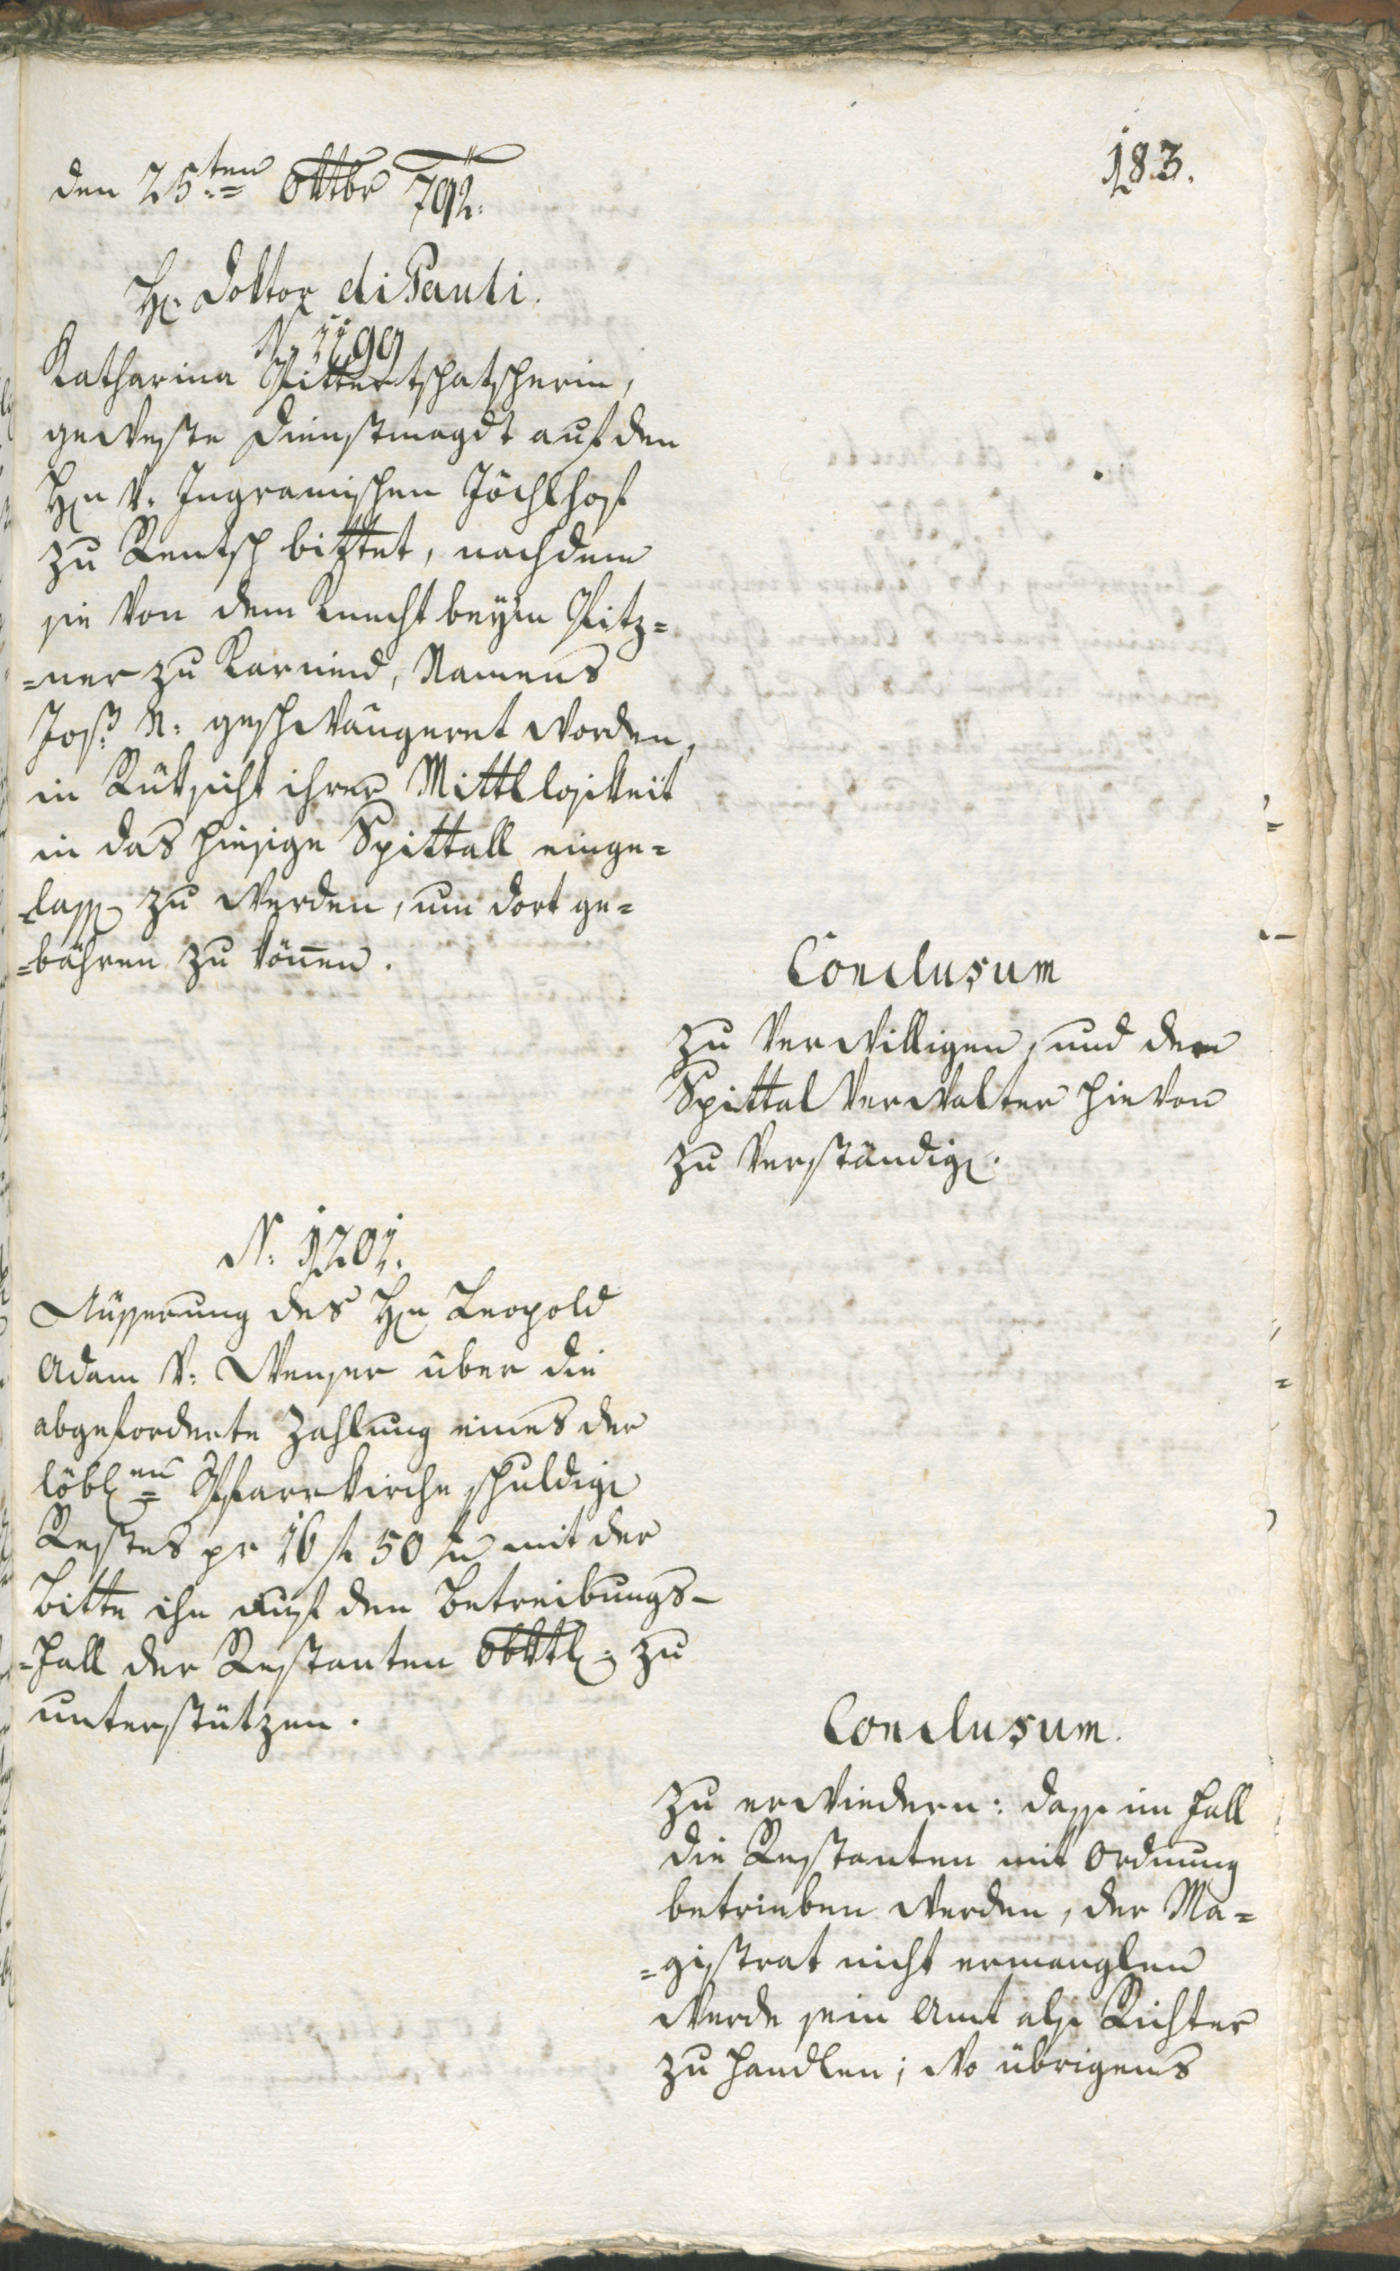 183.
den 25ten 8ktbr 792.
H: Doktor di Pauli.
N. 1199
Katharina Pittertschatscherin,
geweste Dienstmagdt auf den
Hn v. Ingramischen Jöchlhof
zu Rentsch bittet, nachdeme
sie von dem Knecht beym Pitz=
=ner zu Karneid, Namens
Jos: N: geschwängeret worden,
in Rüksicht ihrer Mittllosikeit
in das hiesige Spittall einge=
=lassen zu werden, um dort ge=
=bähren zu können.
Conclusum
zu verwilligen, und den
Spittal Verwalter hievon
zu verständigen.
N. 1201.
Aüsserung des Hn Leopold
Adam v: Wenser über die
abgeforderte Zahlung eines der
löblen Pfarrkirche schuldigen
Restes pr 16 f 50 kr mit der
Bitte ihn auf den Betreibungs-
=Fall der Restanten obktl: zu
unterstützen.
Conclusum.
zu erwiedern: dass im Fall
die Restanten mit Ordnung
betrieben werden, der Ma=
=gistrat nicht ermanglen
werde sein Amt als Richter
zu handlen; wo übrigens